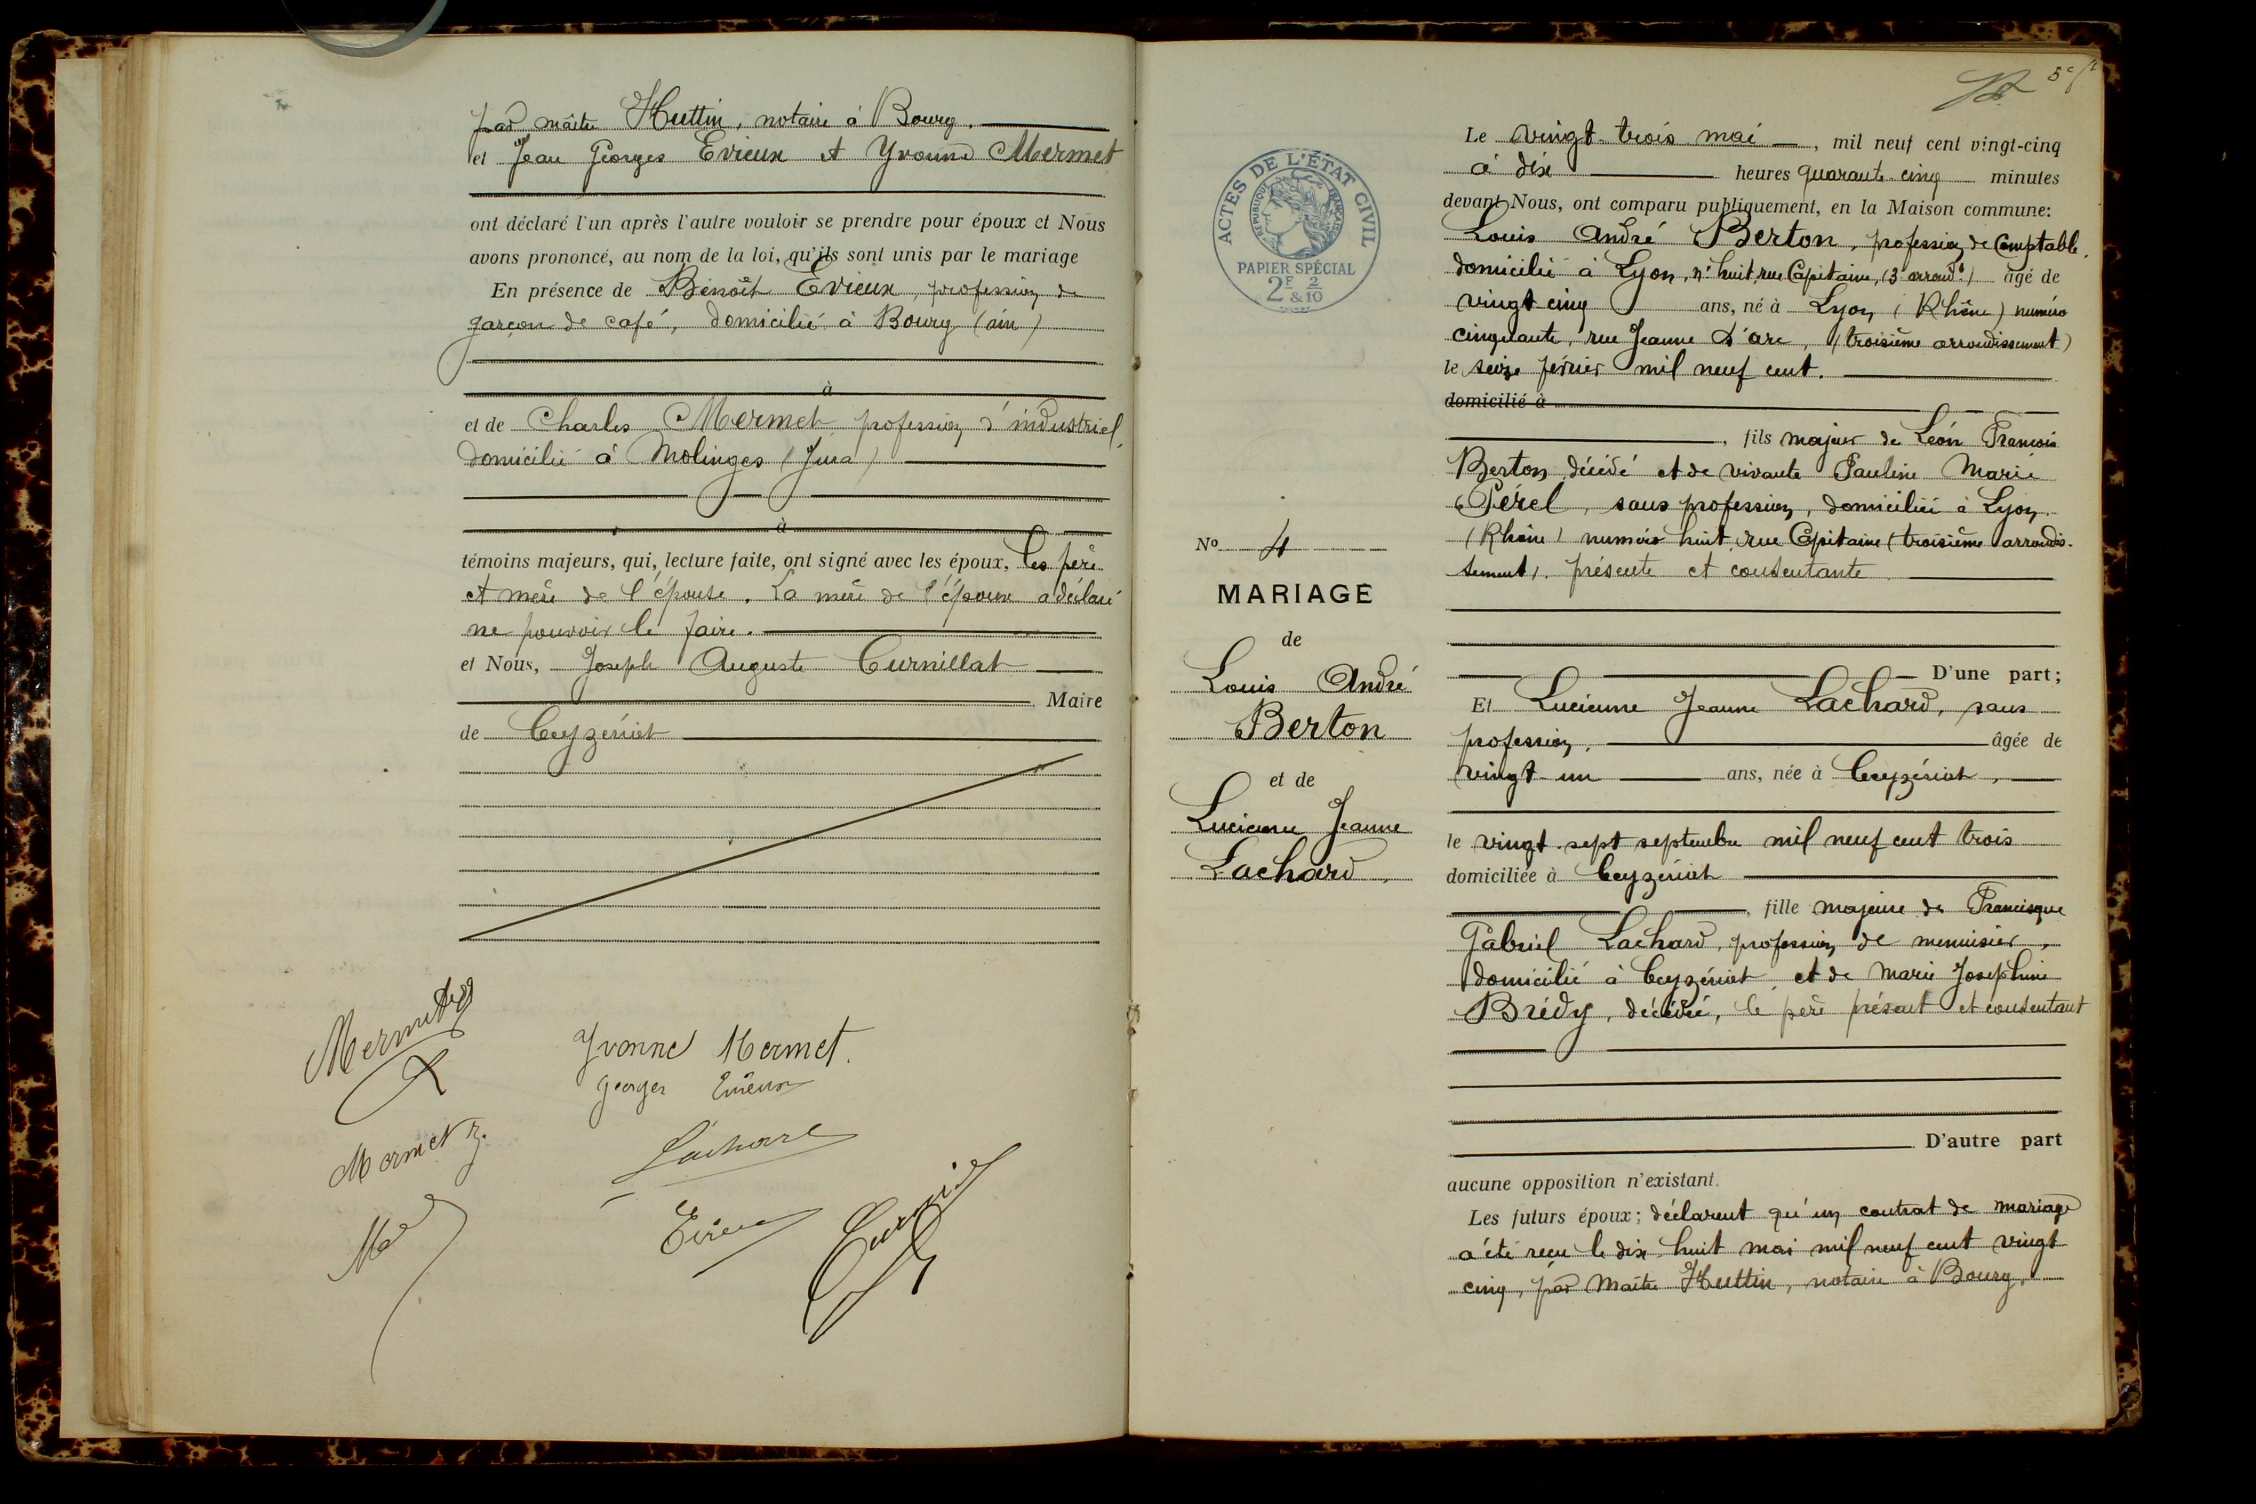 par maître Huttin, notaire à Bourg.
et Jean Georges Evieux et Yvonne Mermet
ont déclaré l'un après l'autre vouloir se prendre pour époux et Nous
avons prononcé, au nom de la loi, qu'ils sont unis par le mariage
En présence de Benoît Evieux, profession de
garçon de café, domicilié à Bourg (ain)
à
et de Charles Mermet profession d'industriel,
domicilié à Molinges (Jura)
à
témoins majeurs, qui, lecture faite, ont signé avec les époux, les père
et mère de l'épouse. La mère de l'époux a déclaré
ne pouvoir le faire.
et Nous, Joseph Auguste Curnillat
Maire
de Ceyzériat
Mermet
Yvonne Mermet.
Georges Evieux
Mermet
Lachard
Evieux
5e
Le vingt-trois mai, mil neuf cent vingt-cinq
à dix heures quarante-cinq minutes
devant Nous, ont comparu publiquement, en la Maison commune:
Louis André Berton, profession de Comptable,
domicilié à Lyon, n° huit, rue Capitaine, (3e arrondt) âgé de
vingt cinq ans, né à Lyon (Rhône) numéro
cinquante, rue Jeanne d'arc, (troisième arrondissement)
le seize février mil neuf cent.
domicilié à
, fils majeur de Léon François
Berton, décédé et de vivante Pauline Marie
Pérel, sans profession, domiciliée à Lyon
(Rhône) numéro huit, rue Capitaine (troisième arrondis-
sement), présente et consentante
D'une part;
Et Lucienne Jeanne Lachard, sans
profession, âgée de
vingt-un ans, née à Ceyzériat,
le vingt-sept septembre mil neuf cent trois
domiciliée à Ceyzériat
, fille majeure de Francisque
Gabriel Lachard, profession de menuisier,
domicilié à Ceyzériat, et de Marie Joséphine
Brédy, décédée, le père présent et consentant
D'autre part
aucune opposition n'existant.
Les futurs époux; déclarent qu'un contrat de mariage
a été reçu le dix-huit mai mil neuf cent vingt
cinq, par Maître Huttin, notaire à Bourg.
ACTES DE L'ÉTAT CIVIL
RÉPUBLIQUE FRANÇAISE
PAPIER SPÉCIAL
2F & 2/10
No 4
MARIAGE
de
Louis André
Berton
et de
Lucienne Jeanne
Lachard,